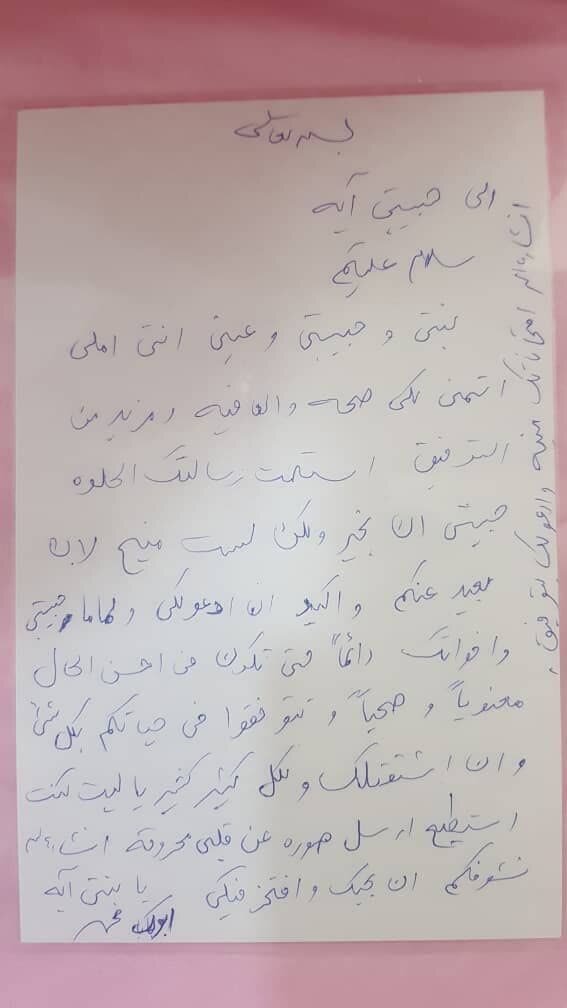 بسمه تعالى
الى حبيبتي آيه
سلام عليكم
بنتي و حبيبتي و عيني انتي املي
اتمنى لكي صحه والعافيه ومزيد من
التوفيق استلمت رسالتك الحلوه
حبيبتي انا بخير ولكن لست منيح لان
بعيد عنكم و اكيد انا ادعولكي و لماما حبيبتي
و اخواتك دائماً حتى تكون في احسن الحال
معنوياً و صحياً و تتوفقوا في حياتكم بكل شئ
و انا اشتقتلك و لكل كثير كثير يا ليت كنت
استطيع ارسل صوره عن قلبي محروقة انشاءالله
نشوفكم انا بحبك و افتخر فيكي يا بنتي آيه
ابوك
انشاءالله امتحاناتك منيحه وادعولك بتوفيق